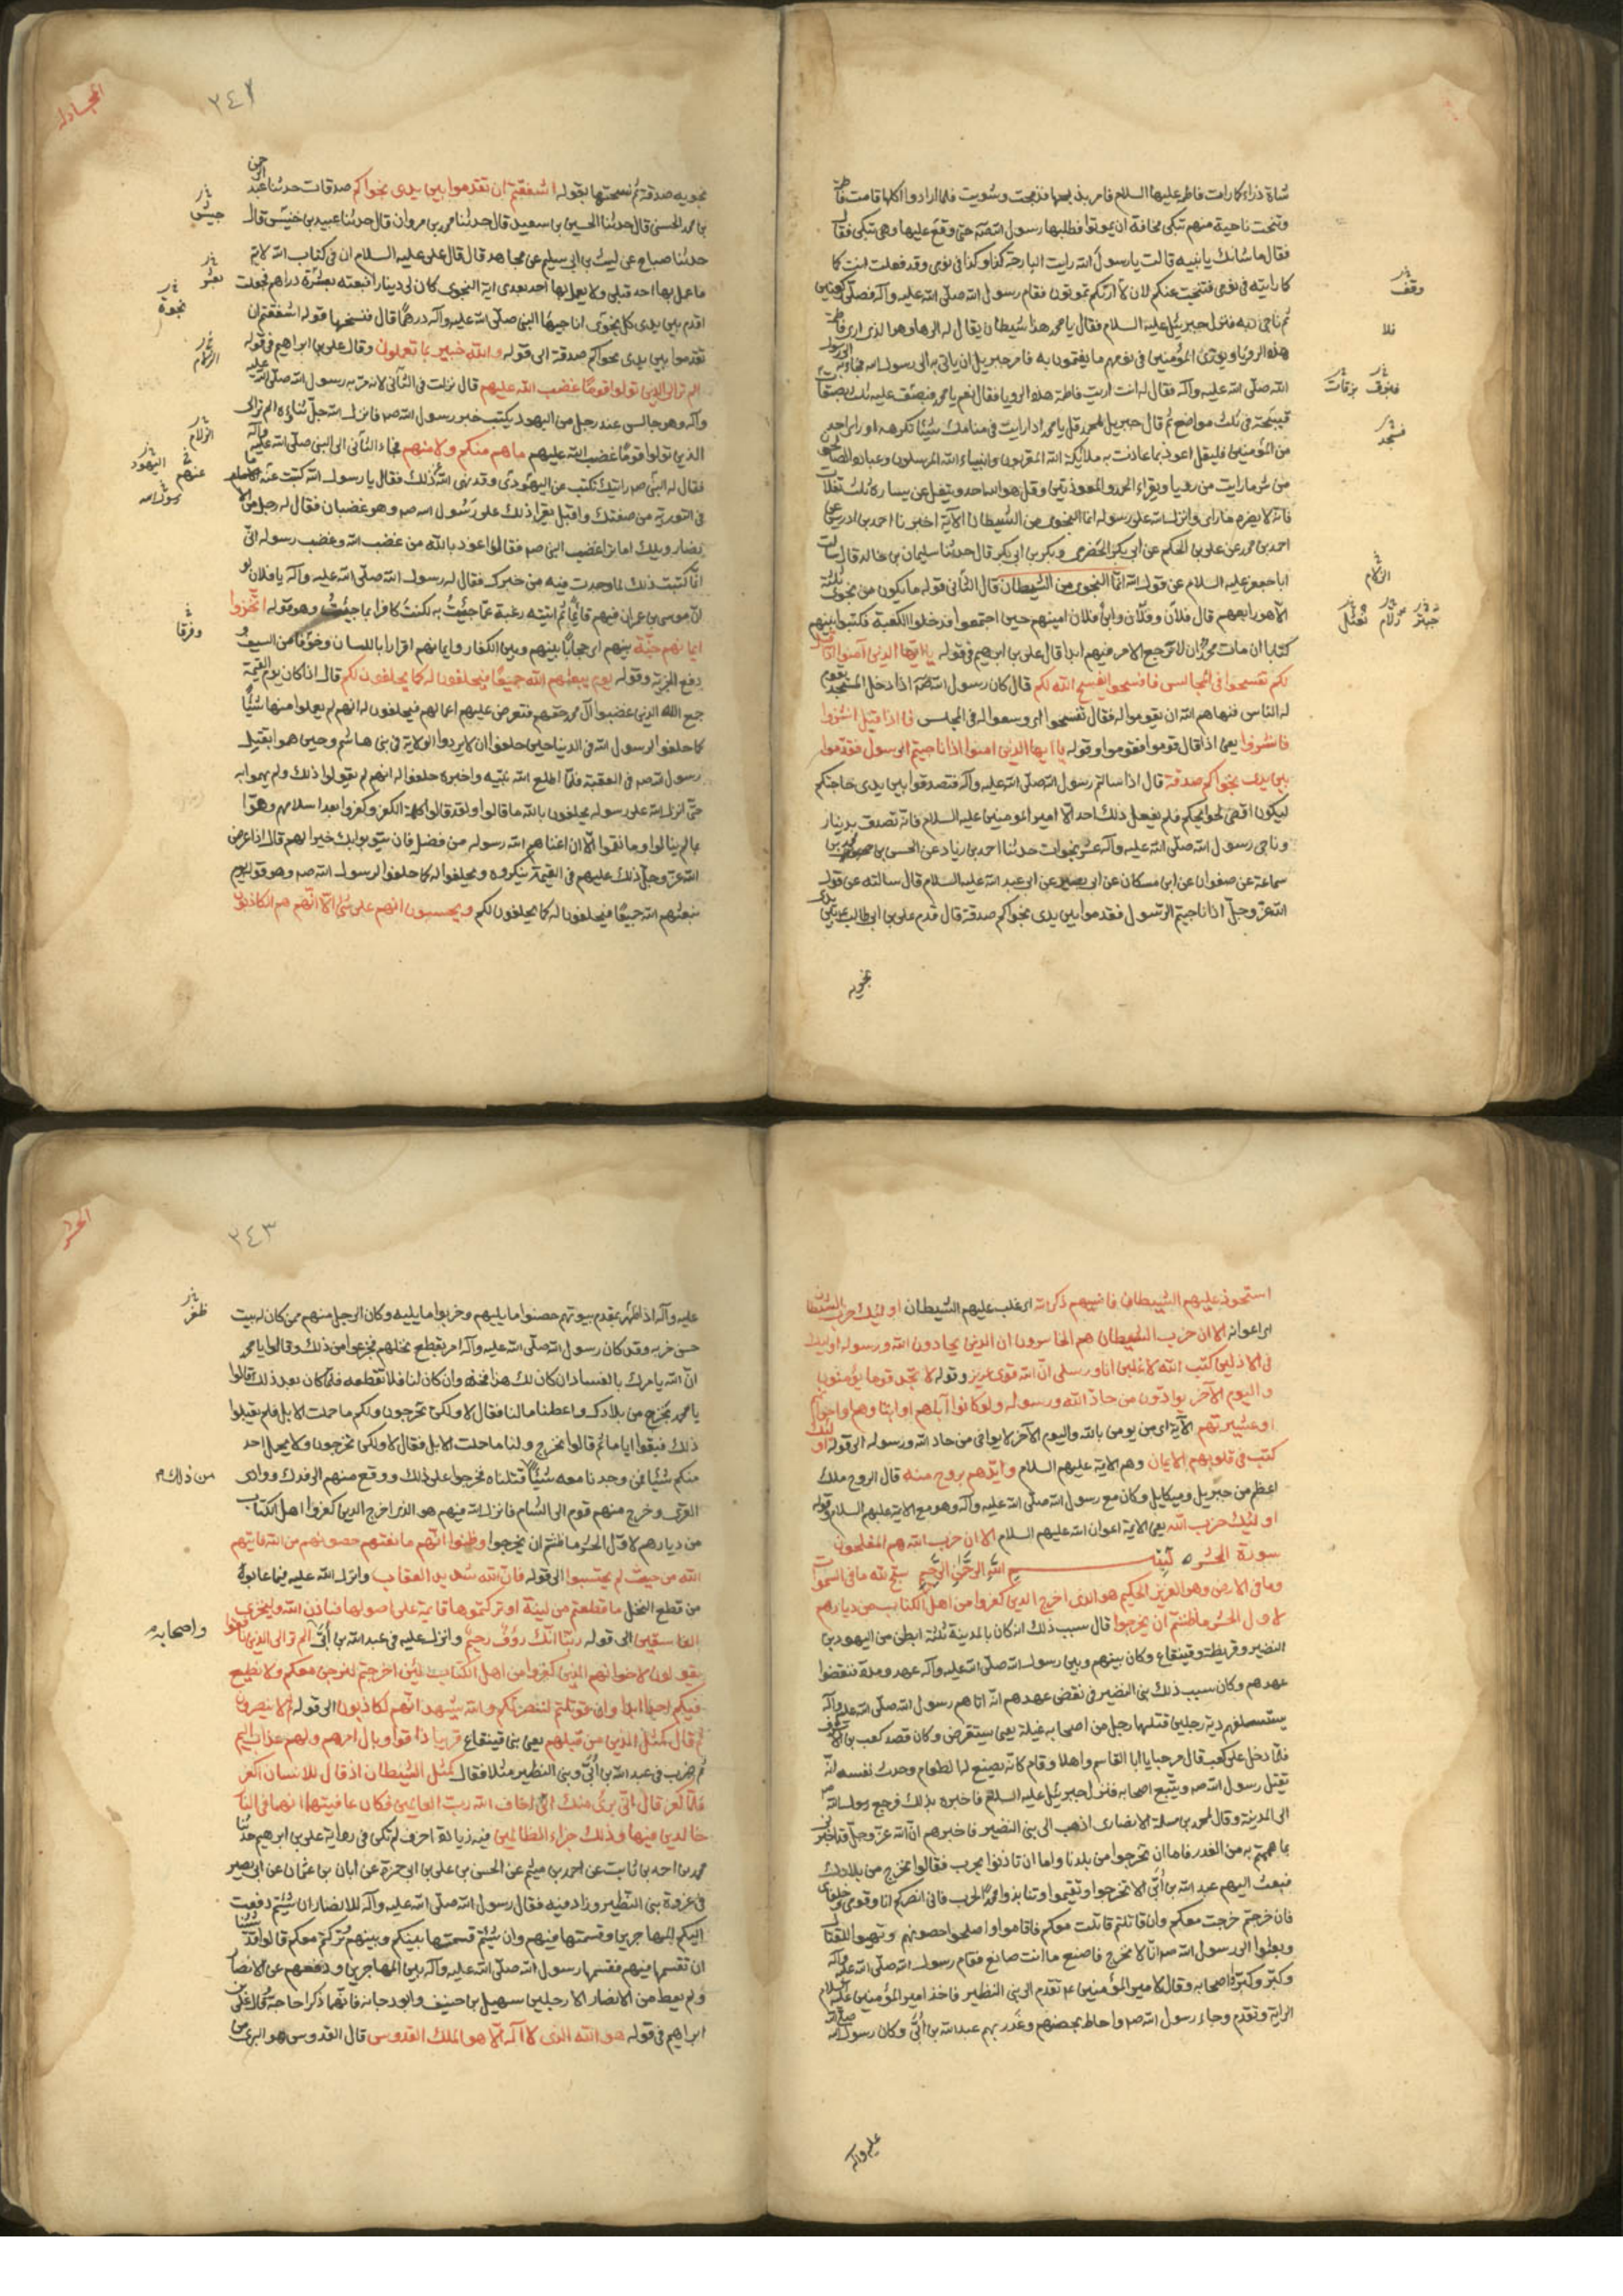 شاة ذراء كما رات فاطمه عليها السلام فامر بذبحها فذبحت وشويت فلما ارادوا اكلها قامت فاطمة
وتنحت ناحية منهم تبكى مخافة ان يموتوا فطلبها رسول الله صه حتى وقع عليها وهى تبكى فقال
فقال ما شانك يا بنيه قالت يا رسول الله رايت البارحة كذا وكذا فى نومى وقد فعلت انت كما
كا رايته فى نومى فتنحيت عنكم لان لا اراكم تموتون فقام رسول الله صلى الله عليه وآله فصلى ركعتين
ثم ناجى ربه فنزل جبرئيل عليه السلام فقال يا محمد هذا شيطان يقال له الرها وهو الذى ارى فاطمة
هذه الرويا ويوذى المؤمنين فى نومهم ما يغتمون به فامر جبريل ان ياتى به الى رسول الله فجاء به الى رسول
الله صلى الله عليه وآله فقال له انت اريت فاطمة هذه الرويا فقال نعم يا محمد فبصق عليه ثلث بصقات
قبيحة فى ثلث مواضع ثم قال جبريل لمحمد قل يا محمد اذا رايت فى منامك شيئا تكرهه او راى احد
من المؤمنين فليقل اعوذ بما عاذت به ملائكة الله المقربون وانبياء الله المرسلون وعباده الصالحون
من شر ما رايت من رويا ويقراء الحمد والمعوذتين وقل هو الله احد ويتفل عن يساره ثلث تفلات
فانه لا يضره ما راى وانزل الله على رسوله انما النجوى من الشيطان الآية اخبرنا احمد بن ادريس عن
احمد بن محمد عن على بن الحكم عن ابى بكر الحضرمى وبكر بن ابى بكر قال حدثنا سليمان بن خالد قال سالت
ابا جعفر عليه السلام عن قول الله انما النجوى من الشيطان قال الثانى قوله ما يكون من نجوى ثلثة
الا هو رابعهم قال فلان وفلان وابن فلان امينهم حين اجتمعوا فدخلوا الكعبة فكتبوا بينهم
كتابا ان مات محمد ان لا ترجع الامر فيهم ابدا قال على بن ابرهيم فى قوله يا ايها الذين آمنوا اذا قيل
لكم تفسحوا فى المجالس فافسحوا يفسح الله لكم قال كان رسول الله صه اذا دخل المسجد يقوم
له الناس فنهاهم الله ان يقوموا له فقال تفسحوا اى وسعوا له فى المجلس فى اذا قيل انشزوا
فانشزوا يعنى اذا قال قوموا فقوموا وقوله يا ايها الذين امنوا اذا ناجيتم الرسول فقدموا
بين يدى نجواكم صدقة قال اذا سالتم رسول الله صلى الله عليه وآله فتصدقوا بين يدى حاجتكم
ليكون اقضى لحوايجكم فلم يفعل ذلك احد الا امير المومنين عليه السلام فانه تصدق بدينار
وناجى رسول الله صلى الله عليه وآله عشر نجوات حدثنا احمد بن زياد عن الحسن بن محمد بن
سماعة عن صفوان عن ابن مسكان عن ابى بصير عن ابى عبد الله عليه السلام قال سالته عن قول
الله عز وجل اذا ناجيتم الرسول فقدموا بين يدى نجواكم صدقة قال قدم على بن ابى طالب بين يدى
نجويه
وقف
فلا
فبزق بزقات
فشجه
الزلام
حبتر زلام نعثل
المجادله
٣٤٢
نجويه صدقة ثم نسختها بقوله ااشفقتم ان تقدموا بين يدى نجواكم صدقات حدثنا عبد الرحمن
بن محمد الحسنى قال حدثنا الحسين بن سعيد قال حدثنا محمد بن مروان قال حدثنا عبيد بن خنيس قال
حدثنا صباح عن ليث بن ابى سليم عن مجاهد قال قال على عليه السلام ان فى كتاب الله لاية
ما عمل بها احد قبلى ولا يعمل بها احد بعدى اية النجوى كان لى دينار فبعته بعشرة دراهم فجعلت
اقدم بين يدى كل نجوى اناجيها النبى صلى الله عليه وآله درهما قال فنسخها قوله ااشفقتم ان
تقدموا بين يدى نجواكم صدقة الى قوله والله خبير بما تعملون وقال على بن ابراهيم فى قوله
الم تر الى الذين تولوا قوما غضب الله عليهم قال نزلت فى الثانى لانه مر به رسول الله صلى الله عليه
وآله وهو جالس عند رجل من اليهود يكتب خبر رسول الله صه فانزل الله جل ثناؤه الم تر الى
الذين تولوا قوما غضب الله عليهم ما هم منكم ولا منهم فجاء الثانى الى النبى صلى الله عليه وآله
فقال له النبى صه رايتك تكتب عن اليهودى وقد نهى الله ذلك فقال يا رسول الله كتبت عنه ما
فى التورية من صفتك واقبل يقرا ذلك على رسول الله صه وهو غضبان فقال له رجل من الا
نصار ويلك اما ترا غضب النبى صه فقال اعوذ بالله من غضب الله وغضب رسوله انى
انما كتبت ذلك لما وجدت فيه من خبرك فقال له رسول الله صلى الله عليه وآله يا فلان لو
ان موسى بن عمران فيهم قائما ثم اتيته رغبة عما جئت به لكنت كافرا بما جئت وهو قوله اتخذوا
ايمانهم جنة بينهم اى حجابا بينهم وبين الكفار وايمانهم اقرارا باللسان وخوفا من السيف و
رفع الجزية وقوله يوم يبعثهم الله جميعا فيحلفون له كما يحلفون لكم قال اذا كان يوم القيمة
جمع الله الذين غضبوا آل محمد حقهم فتعرض عليهم اعمالهم فيحلفون له انهم لم يعملوا منها شيئا
كما حلفوا لرسول الله فى الدنيا حين حلفوا ان لا يردوا الولاية فى بنى هاشم وحين هموا بقتل
رسول الله صه فى العقبة فلما اطلع الله نبيه واخبره حلفوا له انهم لم يقولوا ذلك ولم يهموا به
حتى انزل الله على رسوله يحلفون بالله ما قالوا ولقد قالوا كلمة الكفر وكفروا بعد اسلامهم وهموا
بما لم ينالوا وما نقموا الا ان اغناهم الله رسوله من فضل فان يتوبوا يك خيرا لهم قال اذا عرض
الله عز وجل ذلك عليهم فى القيمة ينكروه ويحلفوا له كما حلفوا لرسول الله صه وهو قوله يوم
يبعثهم الله جميعا فيحلفون له كما يحلفون لكم ويحسبون انهم على شئ الا انهم هم الكاذبون
نجوة
الزلام
الزلام
عنهم اليهود
رسول الله
وفرقا
استحوذ عليهم الشيطان فانسيهم ذكر الله اى غلب عليهم الشيطان اولئك حزب الشيطان
اى اعوانه الا ان حزب الشيطان هم الخاسرون ان الذين يحادون الله ورسوله اولئك
فى الاذلين كتب الله لاغلبن انا ورسلى ان الله قوى عزيز وقوله لا تجد قوما يؤمنون
واليوم الآخر يوادون من حاد الله ورسوله ولو كانوا آباءهم او ابناءهم واخوانهم
او عشيرتهم الآية اى من يومن بالله واليوم الآخر لا يواخى من حاد الله ورسوله الى قوله اولئك
كتب فى قلوبهم الايمان وهم الايمة عليهم السلام وايدهم بروح منه قال الروح ملك
اعظم من جبريل وميكايل وكان مع رسول الله صلى الله عليه وآله وهو مع الايمة عليهم السلام وقوله
اولئك حزب الله يعنى الايمة اعوان الله عليهم السلام الا ان حزب الله هم المفلحون
سورة الحشر بسم الله الرحمن الرحيم سبح لله ما فى السموات
وما فى الارض وهو العزيز الحكيم هو الذى اخرج الذين كفروا من اهل الكتاب من ديارهم
لاول الحشر ما ظننتم ان يخرجوا قال سبب ذلك انه كان بالمدينة ثلثة ابطن من اليهود بنى
النضير وقريظة وقينقاع وكان بينهم وبين رسول الله صلى الله عليه وآله عهد ومدة فنقضوا
عهدهم وكان سبب ذلك بنى النضير فى نقض عهدهم انه اتاهم رسول الله صلى الله عليه وآله
يستسلفهم دية رجلين قتلهما رجل من اصحابه غيلة يعنى يستقرض وكان قصد كعب بن الاشرف
فلما دخل على كعب قال مرحبا يا ابا القاسم واهلا وقام كانه يصنع لهما الطعام وحدث نفسه انه
يقتل رسول الله صه ويتبع اصحابه فنزل جبرئيل عليه السلام فاخبره بذلك فرجع رسول الله صه
الى المدينة وقال لمحمد بن مسلمة الانصارى اذهب الى بنى النضير فاخبرهم ان الله عز وجل قد اخبرنى
بما هممتم به من الغدر فاما ان تخرجوا من بلدنا واما ان تاذنوا بحرب فقالوا نخرج من بلادك
فبعث اليهم عبد الله بن ابى الا تخرجوا وتقيموا وتنابذوا محمد الحرب فانى انصركم انا وقومى وحلفائى
فان خرجتم خرجت معكم وان قاتلتم قاتلت معكم فاقاموا واصلحوا حصونهم وتهيوا للقتال
وبعثوا الى رسول الله صه انا لا نخرج فاصنع ما انت صانع فقام رسول الله صلى الله عليه وآله
وكبر وكبر اصحابه وقال لامير المؤمنين ع تقدم الى بنى النظير فاخذ امير المؤمنين عليه السلام
الراية وتقدم وجاء رسول الله صه واحاط بحصنهم وغدر بهم عبد الله بن ابى وكان رسول الله صلى الله
عليه وآله
الحشر
٣٤٣
عليه وآله اذا ظهر بمقدم بيوتهم حصنوا ما يليهم وخربوا ما يليه وكان الرجل منهم ممن كان له بيت
حسن خربه وقد كان رسول الله صلى الله عليه وآله امر بقطع نخلهم فجزعوا من ذلك وقالوا يا محمد
ان الله يامرك بالفساد ان كان لك هذا فخذه وان كان لنا فلا تقطعه فلما كان بعد ذلك قالوا
يا محمد نخرج من بلادك واعطنا مالنا فقال لا ولكن تخرجون ولكم ما حملت الابل فلم يقبلوا
ذلك فبقوا اياما ثم قالوا نخرج ولنا ما حملت الابل فقال لا ولكن تخرجون ولا يحمل احد
منكم شيئا فمن وجدنا معه شيئا قتلناه فخرجوا على ذلك ووقع منهم الى فدك ووادى
القرى وخرج منهم قوم الى الشام فانزل الله فيهم هو الذى اخرج الذين كفروا اهل الكتاب
من ديارهم لاول الحشر ما ظننتم ان يخرجوا وظنوا انهم مانعتهم حصونهم من الله فاتيهم
الله من حيث لم يحتسبوا الى قوله فان الله شديد العقاب وانزل الله عليه فيما عابوه
من قطع النخل ما قطعتم من لينة او تركتموها قايمة على اصولها فباذن الله وليخزى
الفاسقين الى قوله ربنا انك رؤف رحيم وانزل عليه فى عبد الله بن ابى الم تر الى الذين نافقوا
يقولون لاخوانهم الذين كفروا من اهل الكتاب لئن اخرجتم لنخرجن معكم ولا نطيع
فيكم احدا ابدا وان قوتلتم لننصرنكم والله يشهد انهم لكاذبون الى قوله ثم لا ينصرون
ثم قال كمثل الذين من قبلهم يعنى بنى قينقاع قريبا ذاقوا وبال امرهم ولهم عذاب اليم
ثم ضرب فى عبد الله بن ابى وبنى النظير مثلا فقال كمثل الشيطان اذ قال للانسان اكفر
فلما كفر قال انى برئ منك انى اخاف الله رب العالمين فكان عاقبتهما انهما فى النار
خالدين فيها وذلك جزاء الظالمين فيه زيادة احرف لم تكن فى رواية على بن ابرهيم حدثنا
محمد بن احمد بن ثابت عن احمد بن ميثم عن الحسن بن على بن ابى حمزة عن ابان بن عثمان عن ابى بصير
فى غزوة بنى النظير وزاد فيه فقال رسول الله صلى الله عليه وآله للانصار ان شئتم دفعت
اليكم المهاجرين وقسمتها فيهم وان شئتم قسمتها بينكم وبينهم وتركتهم معكم قالوا قد شئنا
ان تقسمها فيهم فقسمها رسول الله صلى الله عليه وآله بين المهاجرين ودفعهم عن الانصار
ولم يعط من الانصار الا رجلين سهيل بن حنيف وابو دجانه فانهما ذكرا حاجة قال على بن
ابراهيم فى قوله هو الله الذى لا اله الا هو الملك القدوس قال القدوس هو البرى من
ظفر
من ذلك
واصحابه